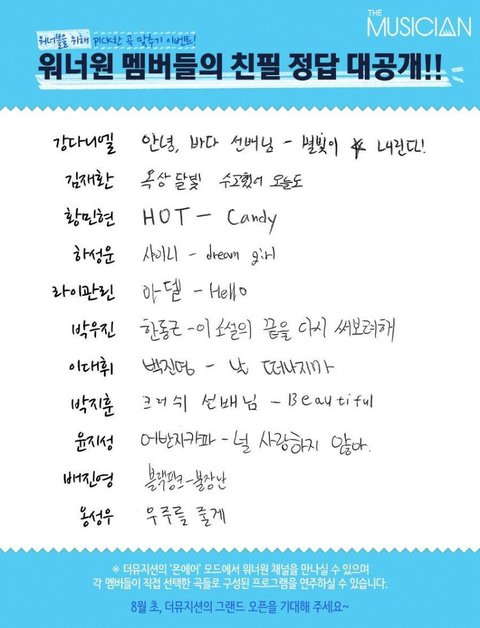 THE MUSICIAN
워너블을 위해 PICK한 곡 맞추기 이벤트!
워너원 멤버들의 친필 정답 대공개!!
강다니엘 안녕, 바다 선배님 - 별빛이 내린다!
김재환 옥상달빛 수고했어 오늘도
황민현 HOT - Candy
하성운 샤이니 - dream girl
라이관린 아델 - Hello
박우진 한동근 - 이 소설의 끝을 다시 써보려해
이대휘 박진영 - 날 떠나지마
박지훈 크러쉬 선배님 - Beautiful
윤지성 어반자카파 - 널 사랑하지 않아.
배진영 블랙핑크 - 불장난
옹성우 우주를 줄게
※ 더뮤지션의 '온에어' 모드에서 워너원 채널을 만나실 수 있으며
각 멤버들이 직접 선택한 곡들로 구성된 프로그램을 연주하실 수 있습니다.
8월 초, 더뮤지션의 그랜드 오픈을 기대해 주세요~